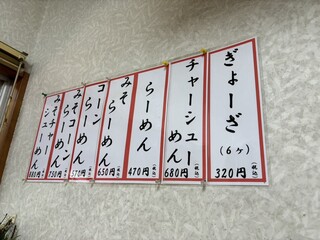 ぎょーざ
(6ヶ)
(税込)
320円
チャーシューめん
(税込)
680円
らーめん
(税込)
470円
みそらーめん
650円
コーンらーめん
570円
みそコーンらーめん
750円
みそチャーシューめん